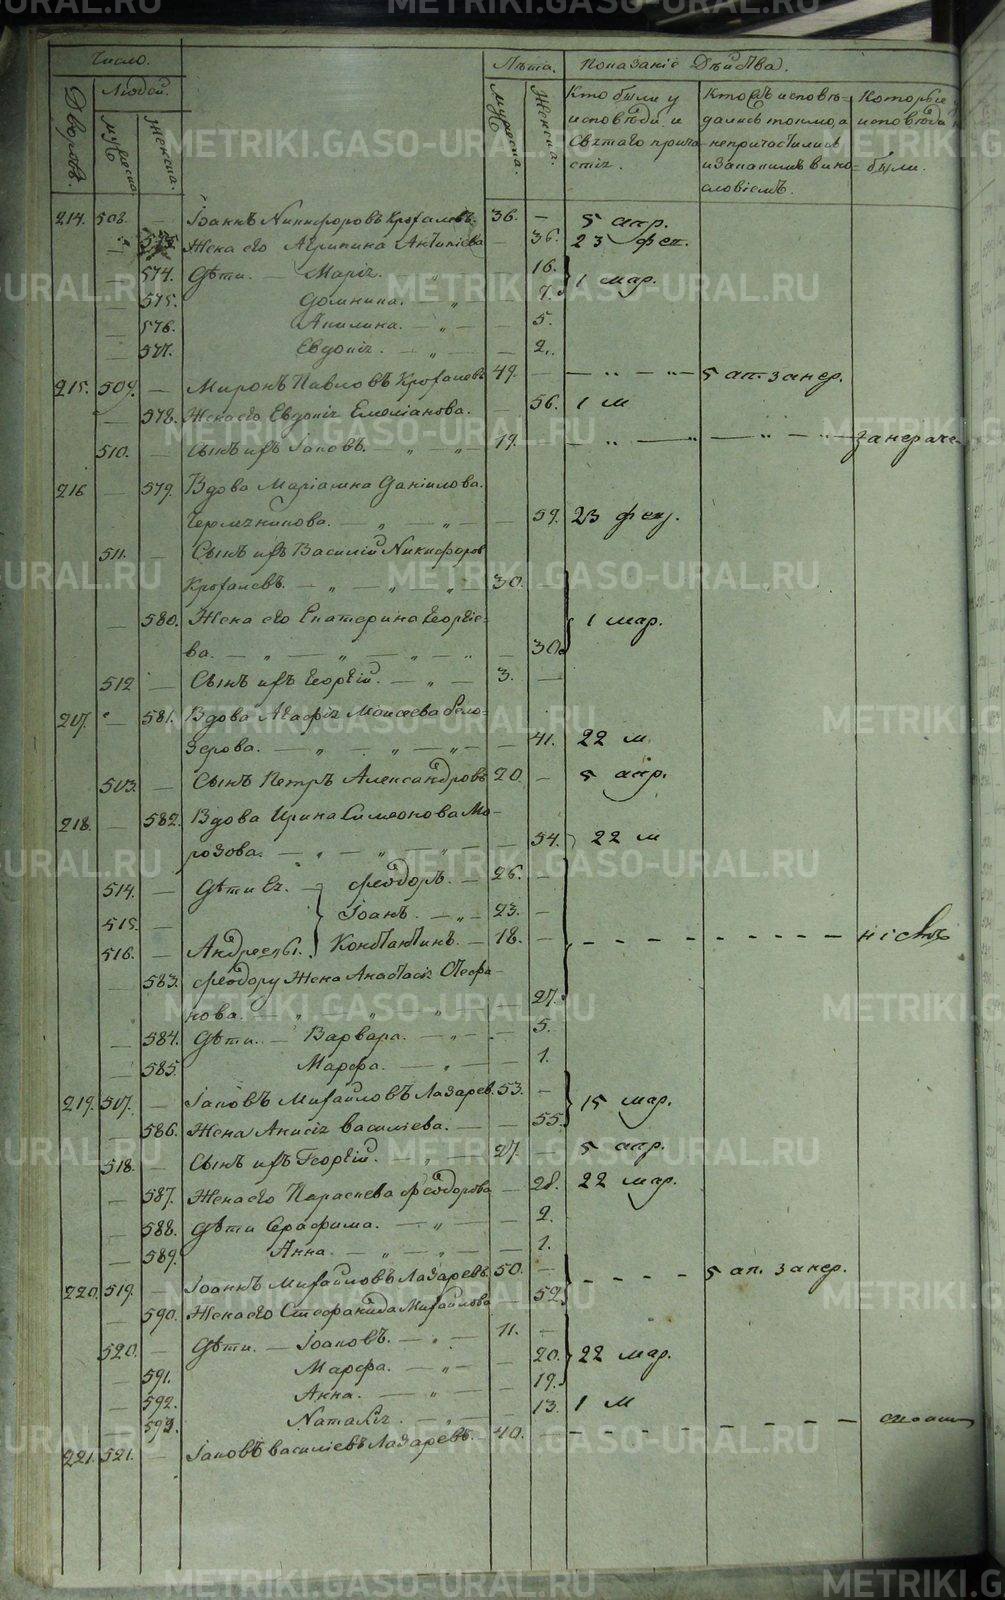 Число.
Лѣта.
Показаніе Дѣйства.
Людей.
Дворовъ.
мужеска.
женска.
мужеска.
женска.
Кто были у
исповѣди и
святаго прича-
стія.
Кто исповѣ-
дались токмо, а
непричастились
и за какимъ вино-
словіемъ.
Которые
исповѣди
были.
214. 508. — Іоаннъ Никифоровъ 36. — 5 апр.
— 573. Жена его Агрипина Антипіева — 36. 23 фев.
— 574. Дѣти. — Марія. — 16. 1 мар.
— 575. Домнина. — „ — 7.
— 576. Акилина. — „ — 5.
— 577. Евдокія. — „ — 2.
215. 509. — Миронъ Павловъ 49. — 5 ап. занер.
— 578. Жена его Евдокія Емеліанова. — 56. 1 м
510. — Сынъ ихъ Іаковъ. — „ — 19. —
216 — 579. Вдова Маріамна Даніилова.
— „ — „ — 59. 23 фев.
511. — Сынъ ихъ Василій Никифоров
— „ — „ — 30. —
— 580. Жена его Екатерина Георгіе-
ва. — „ — „ — „ — 30. 1 мар.
512 — Сынъ ихъ Георгій. — „ — 3. —
217. — 581. Вдова Агафія Моисеева Бело-
зерова. — „ — „ — „ — 41. 22 м
503. — Сынъ Петръ Александровъ 20. — 5 апр.
218. — 582. Вдова Ирина Симеонова Мо-
розова. — „ — „ — 54. 22 м
514. — Дѣти Ея. — Феодоръ. — 26. —
515. — Іоанъ. — „ — 23. —
516. — Андреевы. Константинъ. — 18. —
583. Феодору Жена Анастасія Стефа-
нова. „ „ „ — 27.
— 584. Дѣти. — Варвара. — „ — 5.
585. Марфа. — „ — 1.
219. 517. — Іаковъ Михайловъ Лазарев. 53. — 15 мар.
— 586. Жена Анисія Василіева. — 55.
518. — Сынъ ихъ Георгій. — „ — 27. — 5 апр.
— 587. Жена его Параскева Феодорова — 28. 22 мар.
— 588. Дѣти Серафима. — „ — 2.
— 589. Анна. — „ — „ — 1.
220. 519. — Іоаннъ Михайловъ Лазаревъ. 50. — 5 ап. занер.
— 590. Жена его Стефанида Михайлова — 52.
520. — Дѣти. — Іаковъ. — „ — 11. —
— 591. Марфа. — „ — 20. 22 мар.
— 592. Анна. — „ — 19.
— 593. Наталія. — „ — 13. 1 м
221. 521. — Іаковъ Василіевъ Лазаревъ. — 40. —
METRIKI.GASO-URAL.RU